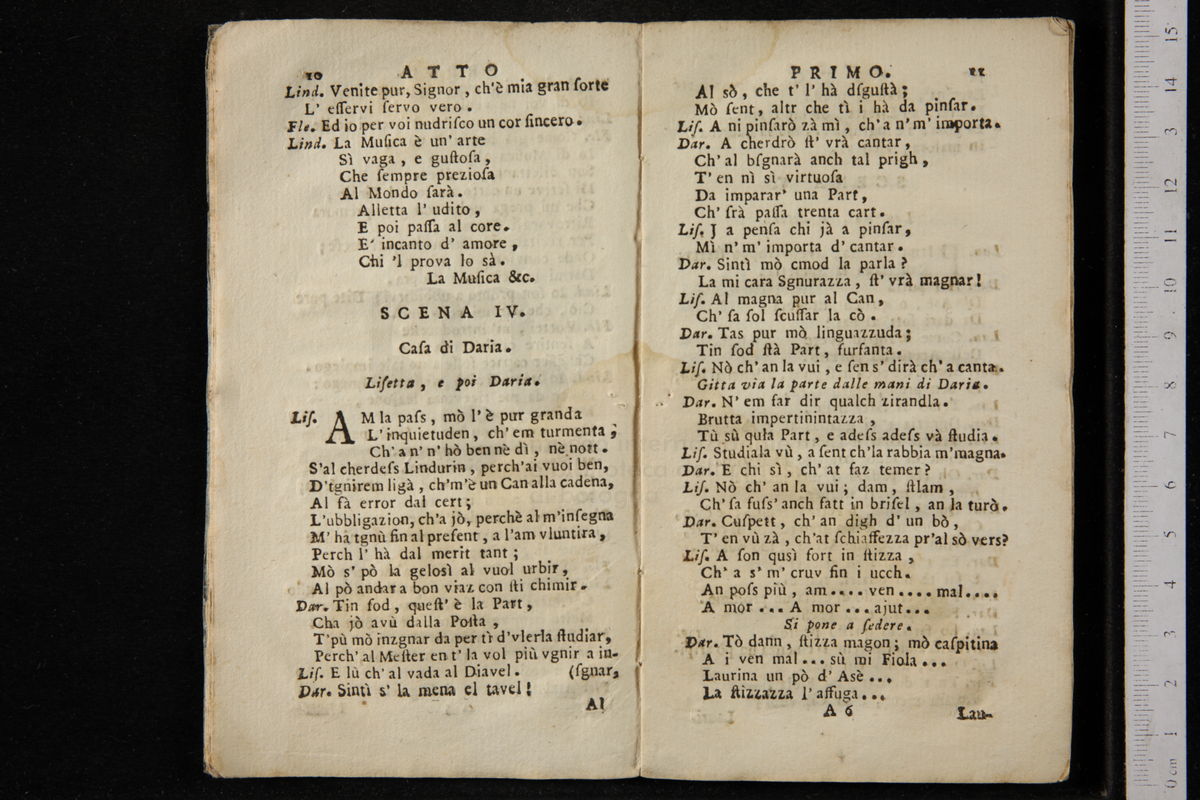 10 ATTO
Lind. Venite pur, Signor, ch'è mia gran ſorte
L' eſſervi ſervo vero.
Fle. Ed io per voi nudriſco un cor ſincero.
Lind. La Muſica è un' arte
Sì vaga, e guſtoſa,
Che ſempre prezioſa
Al Mondo ſarà.
Alletta l' udito,
E poi paſſa al core.
E' incanto d' amore,
Chi 'l prova lo sà.
La Muſica &c.
SCENA IV.
Caſa di Daria.
Liſetta, e poi Daria.
Liſ. AM la paſs, mò l' è pur granda
L' inquietuden, ch' em turmenta;
Ch' a n' n' hò ben nè dì, nè nott.
S'al cherdeſs Lindurin, perch'ai vuoi ben,
D'tgnirem ligà, ch'm'è un Can alla cadena,
Al fà error dal cert;
L'ubbligazion, ch'a jò, perchè al m'inſegna
M' hà tgnù fin al preſent, a l'am vluntira,
Perch l' hà dal merit tant;
Mò s' pò la gelosì al vuol urbir,
Al pò andar a bon viaz con ſti chimir.
Dar. Tin ſod, queſt' è la Part,
Cha jò avù dalla Poſta,
T'pù mò inzgnar da per tì d'vlerla ſtudiar,
Perch' al Meſter en t' la vol più vgnir a in-
Liſ. E lù ch' al vada al Diavel. (ſgnar,
Dar. Sintì s' la mena el tavel!
Al
PRIMO. 11
Al sò, che t' l' hà dſguſtà;
Mò ſent, altr che tì i hà da pinſar.
Liſ. A ni pinſarò zà mì, ch' a n' m' importa.
Dar. A cherdrò ſt' vrà cantar,
Ch' al bſgnarà anch tal prigh,
T' en nì sì virtuoſa
Da imparar' una Part,
Ch' ſrà paſſa trenta cart.
Liſ. J a penſa chi jà a pinſar,
Mì n' m' importa d' cantar.
Dar. Sintì mò cmod la parla?
La mi cara Sgnurazza, ſt' vrà magnar!
Liſ. Al magna pur al Can,
Ch' ſa ſol ſcuſſar la cò.
Dar. Tas pur mò linguazzuda;
Tin ſod ſtà Part, furfanta.
Liſ. Nò ch' an la vui, e ſen s' dirà ch' a canta.
Gitta via la parte dalle mani di Daria.
Dar. N' em far dir qualch zirandla.
Brutta impertinintazza,
Tù sù qula Part, e adeſs adeſs và ſtudia.
Liſ. Studiala vù, a ſent ch'la rabbia m'magna.
Dar. E chi sì, ch' at faz temer?
Liſ. Nò ch' an la vui; dam, ſtlam,
Ch' ſa fuſs' anch fatt in briſel, an la turò.
Dar. Cuſpett, ch' an digh d' un bò,
T' en vù zà, ch'at ſchiaffezza pr'al sò vers?
Liſ. A ſon qusì fort in ſtizza,
Ch' a s' m' cruv fin i ucch.
An poſs più, am.... ven.... mal....
A mor... A mor... ajut...
Si pone a ſedere.
Dar. Tò dann, ſtizza magon; mò caſpitina
A i ven mal... sù mi Fiola...
Laurina un pò d' Asè...
La ſtizzazza l' affuga...
A 6 Lau-